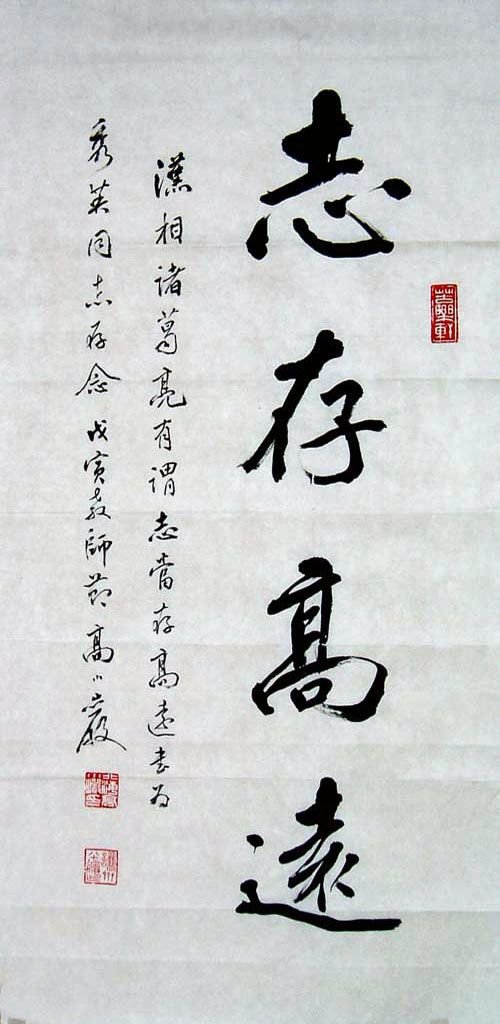 志存高遠
漢相諸葛亮有謂志當存高遠書為
秀英同志存念 戊寅教師節 高小巖